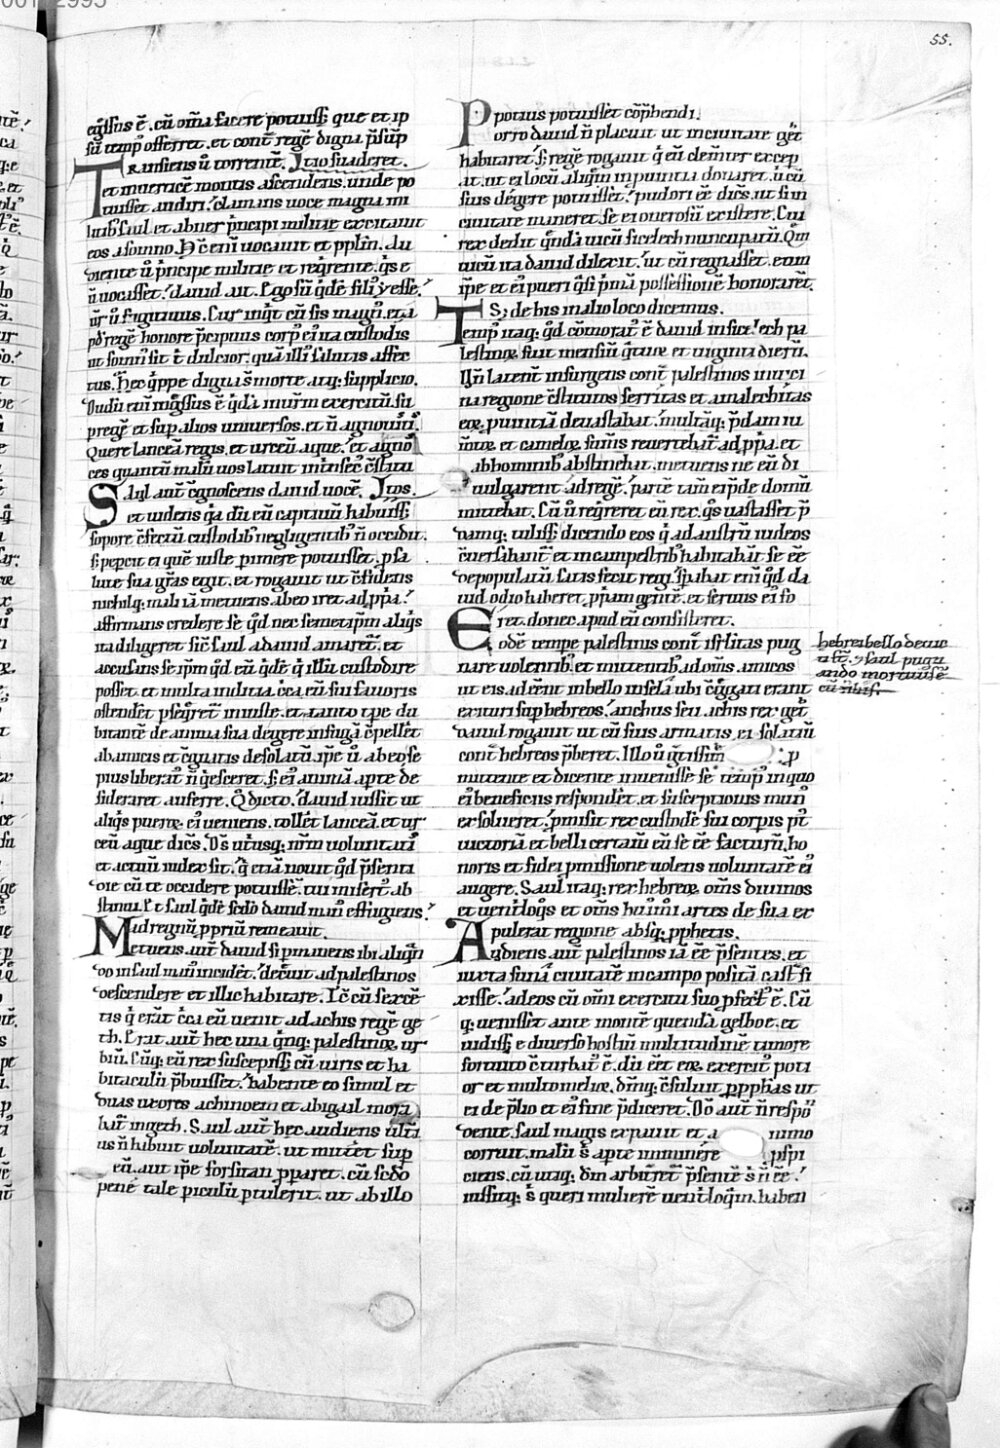 55.
egressus ē. cū om̄a facere potuiss; que et ip
sū temp⁹ offerret. et cont̄ regē digna p̄sūp
Transiens ū torrentē. Itio suaderet.
et in uerticē montis ascendens. unde po
tuisset audiri. clamans uoce magna mi
litib; saul et abner p̄ncipi militie excitauit
eos a somno. Hc̄ enī uocauit et pplm̄. Au
diente ū p̄ncipe militie et reqrente. q̄s e
ū uocasset. dauid ait. Ego sū q̄dē fili⁹ yesse.
ur̄ ū fugitiuus. Cur inq̄t cū sis magn⁹. et a
pd regē honore p̄cipuus corp⁹ ei⁹ ita custodis
ut somn⁹ sit t̄ dulcior. quā illi⁹ salutis affec
tus. Hec q̄ppe digna s̄ morte atq; supplicio.
p̄regē et sup alios uniuersos. et ū agnouiti⁹.
Quere lanceā regis. et urceū aque. et agno
ces quantū malū uos latuit int̄nsec⁹ c̄stitu
Saul aut̄ c̄gnoscens dauid uocē. Itos.
et uidens q̄a dū eū captiuū habuiss;
sopore c̄fectū custodib; negligentib; n̄ occidit.
s; pepcit ei quē iuste pimere potuisset. p sa
lute sua gr̄as egit. et rogauit ut c̄fidens
nichilq; mali iā metuens. ab eo iret ad pp̄a.
affirmans credere se q̄d nec semetip̄m aliq̄s
ita diligeret sic̄ saul a dauid amaret̄. et
accusans se ip̄m q̄d eū q̄dē q̄ illū custodire
posset. et multa indicia c̄ca eū sui fauoris
ostendēt pseq̄ret̄ iniuste. et tanto tp̄e du
bitantē de anima sua degere in fuga c̄pellēt
ab amicis et c̄gnatis desolatū. ip̄e ū ab eo se
pius liberat⁹ n̄ q̄esceret. s; ei⁹ animā apte de
sideraret auferre. Q̄ dicto. dauid iussit ut
aliq̄s puerōꝝ ei⁹ ueniens. tollēt lanceā. et ur
ceū aque dicēs. Ds̄ ut̄usq; nr̄m uoluntati⁹
et actuū iudex sit. q̄ etiā nouit q̄d p̄senti
die cū te occidere potuissē. tui misert⁹ ab
stinui. Et saul q̄dē sedo dauid man⁹ effugiens.
ad regnū ppriū remeauit.
Metuens. aut̄ dauid si pmanens ibi aliq̄n
do in saul man⁹ incidēt. decreuit ad palestinos
descendere et illic habitare. Ic̄ cū sexcē
tis q̄ erāt c̄ca eū uenit ad achis regē ge
th. Erat aut̄ hec una q̄nq; palestinoꝝ ur
biū. Cūq; eū rex suscepiss; cū uiris et ha
bitaculū p̄buisset. habente eo simul et
duas uxores achinoem et abigail mora
bat̄ in geth. Saul aut̄ hec audiens ult̄i
us n̄ habuit uoluntatē. ut mittēt sup
eū. aut ip̄e forsitan pparet. cū scd̄o
pene tale piculū ptulerit. ut ab illo
Ppotius potuisset cōp̄hendi.
orro dauid n̄ placuit ut in ciuitate get
habitaret. s; regē rogauit q̄ eū clemēter excep
at. ut ei locū aliq̄m in puintia donaret. ū cū
suis degere potuisset. pudori eē dicēs. ut si in
ciuitate maneret. se ei onerosū existere. Cui
rex dedit q̄ndā uicū sicelech nuncupatū. Q̄m
uicū ita dauid dilexit. ut cū regnasset. eum
ip̄e et ei⁹ pueri q̄si p̄mā possessionē honoraret.
S; de his in alio loco dicemus.
Temp⁹ itaq; q̄d cōmorat⁹ ē dauid in sicelech pa
lestinoꝝ. fuit mensiū q̄tuor et uiginti dierū.
Hn̄ latent̄ insurgens cont̄ palestinos in uici
na regione c̄stitutos serritas et amalechitas
eoꝝ puintiā deuastabat. multāq; p̄dam iu
m̄toꝝ et cameloꝝ sumēs reuertebat̄ ad pp̄a. et
ab hominib; abstinebat. metuens ne eū di
uulgarent ad regē. partē tam̄ ei p̄de domū
mittebat. Cū ū req̄reret eū rex. q̄s uastasset p̄
damq; tuliss; dicendo eos q̄ ad austrū iudeos
c̄uersabant̄ et in campestrib; habitabāt se ēē
depopulatū satis fecit regi. sp̄abat eni⁹ q̄d da
uid odio haberet ppam gentē. et seruus ei⁹ fo
ret. donec apud eū consisteret.
Eodē tempe palestinis cont̄ isrl̄itas pug
nare uolentib; et mittentib; ad om̄s amicos
ut eis adeēnt in bello in sela ubi c̄ggati erant
exituri sup hebreos. anchus seu achis rex get
dauid rogauit ut cū suis armatis. ei solatiū
cont̄ hebreos p̄beret. Illo ū gratissim p
mittente et dicente inuenisse se temp⁹ in quo
ei⁹ beneficiis respondēt. et susceptionis mun⁹
exsolueret. p̄misit rex custodē sui corpis p̄t
uictoriā et belli certam̄ eū se ēē facturū. ho
noris et fidei pmissione uolens uoluntatē ei⁹
augere. Saul itaq; rex hebreoꝝ om̄s diuinos
et uent̄loq̄s et om̄s hui⁹m̄i artes de sua ex
pulerat regione absq; pphetis.
Audiens. aut palestinos iā ēē p̄sentes. et
iuxta sunā ciuitatē in campo positā cast̄ fi
xisse. ad eos cū om̄i exercitu suo pfect⁹ ē. Cū
q; uenisset ante montē quendā gelboe. et
uidiss; e diuerso hostiū multitudinē timore
fortuito c̄turbat⁹ ē. dū eēt eoꝝ exercit⁹ poti
or et multo melior. dm̄q; c̄suluit p pphas ut
ei de p̄lio et ei⁹ fine p̄diceret. Do aut̄ n̄ respō
dente. saul magis expauit et a nimo
corruit. malū s̄ apte imminēre pspi
ciens. cū utiq; dm̄ arbitraret̄ p̄sentē s̄ n̄ ēē.
iussitq; s̄ queri mulierē uent̄loq̄m. haben
hebrei bello deuic
ti st̄. et saul pugn
ando mortuus ē